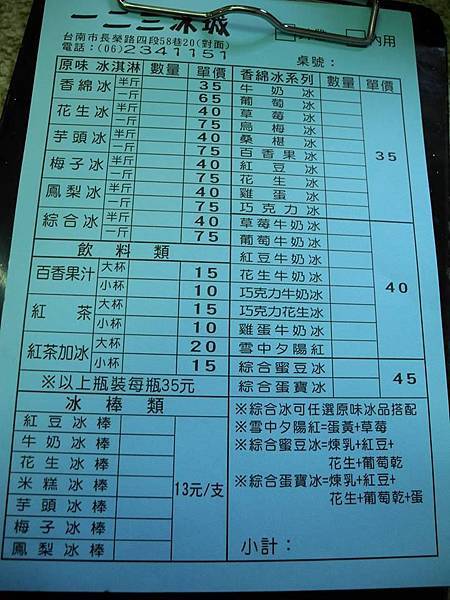 一二三冰城
台南市長榮路四段58巷20(對面)
電話:(06)2341151
內用
桌號：
原味 冰淇淋 數量 單價
香綿冰 半斤 35
一斤 65
花生冰 半斤 40
一斤 75
芋頭冰 半斤 40
一斤 75
梅子冰 半斤 40
一斤 75
鳳梨冰 半斤 40
一斤 75
綜合冰 半斤 40
一斤 75
飲料類
百香果汁 大杯 15
小杯 10
紅茶 大杯 15
小杯 10
紅茶加冰 大杯 20
小杯 15
※以上瓶裝每瓶35元
冰棒類
紅豆冰棒
牛奶冰棒
花生冰棒
米糕冰棒
芋頭冰棒
梅子冰棒
鳳梨冰棒
13元/支
香綿冰系列 數量 單價
牛奶冰
葡萄冰
草莓冰
烏梅冰
桑椹冰
百香果冰
紅豆冰
花生冰
雞蛋冰
巧克力冰
35
草莓牛奶冰
葡萄牛奶冰
紅豆牛奶冰
花生牛奶冰
巧克力牛奶冰
巧克力花生冰
雞蛋牛奶冰
雪中夕陽紅
40
綜合蜜豆冰
綜合蛋寶冰
45
※綜合冰可任選原味冰品搭配
※雪中夕陽紅=蛋黃+草莓
※綜合蜜豆冰=煉乳+紅豆+
花生+葡萄乾
※綜合蛋寶冰=煉乳+紅豆+
花生+葡萄乾+蛋
小計：